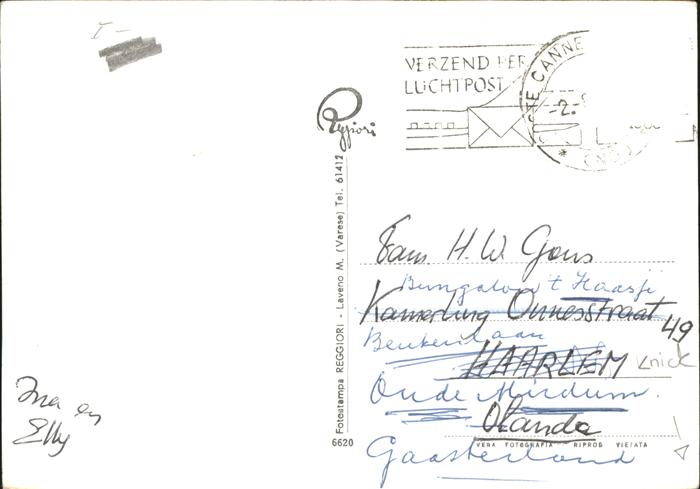 I -
VERZEND PER
LUCHTPOST
TE CANNE
-2.-
Reggiori
Fotostampa REGGIORI - Laveno M. (Varese) Tel. 61412
6620
Fam. H. W. Gous
Bungalow 't Haasje
Kamerling Onnesstraat 49
Beukenlaan
HAARLEM
Oude Mirdum.
Olanda
VERA FOTOGRAFIA RIPROD. VIETATA
Gaasterland
Ina en
Elly